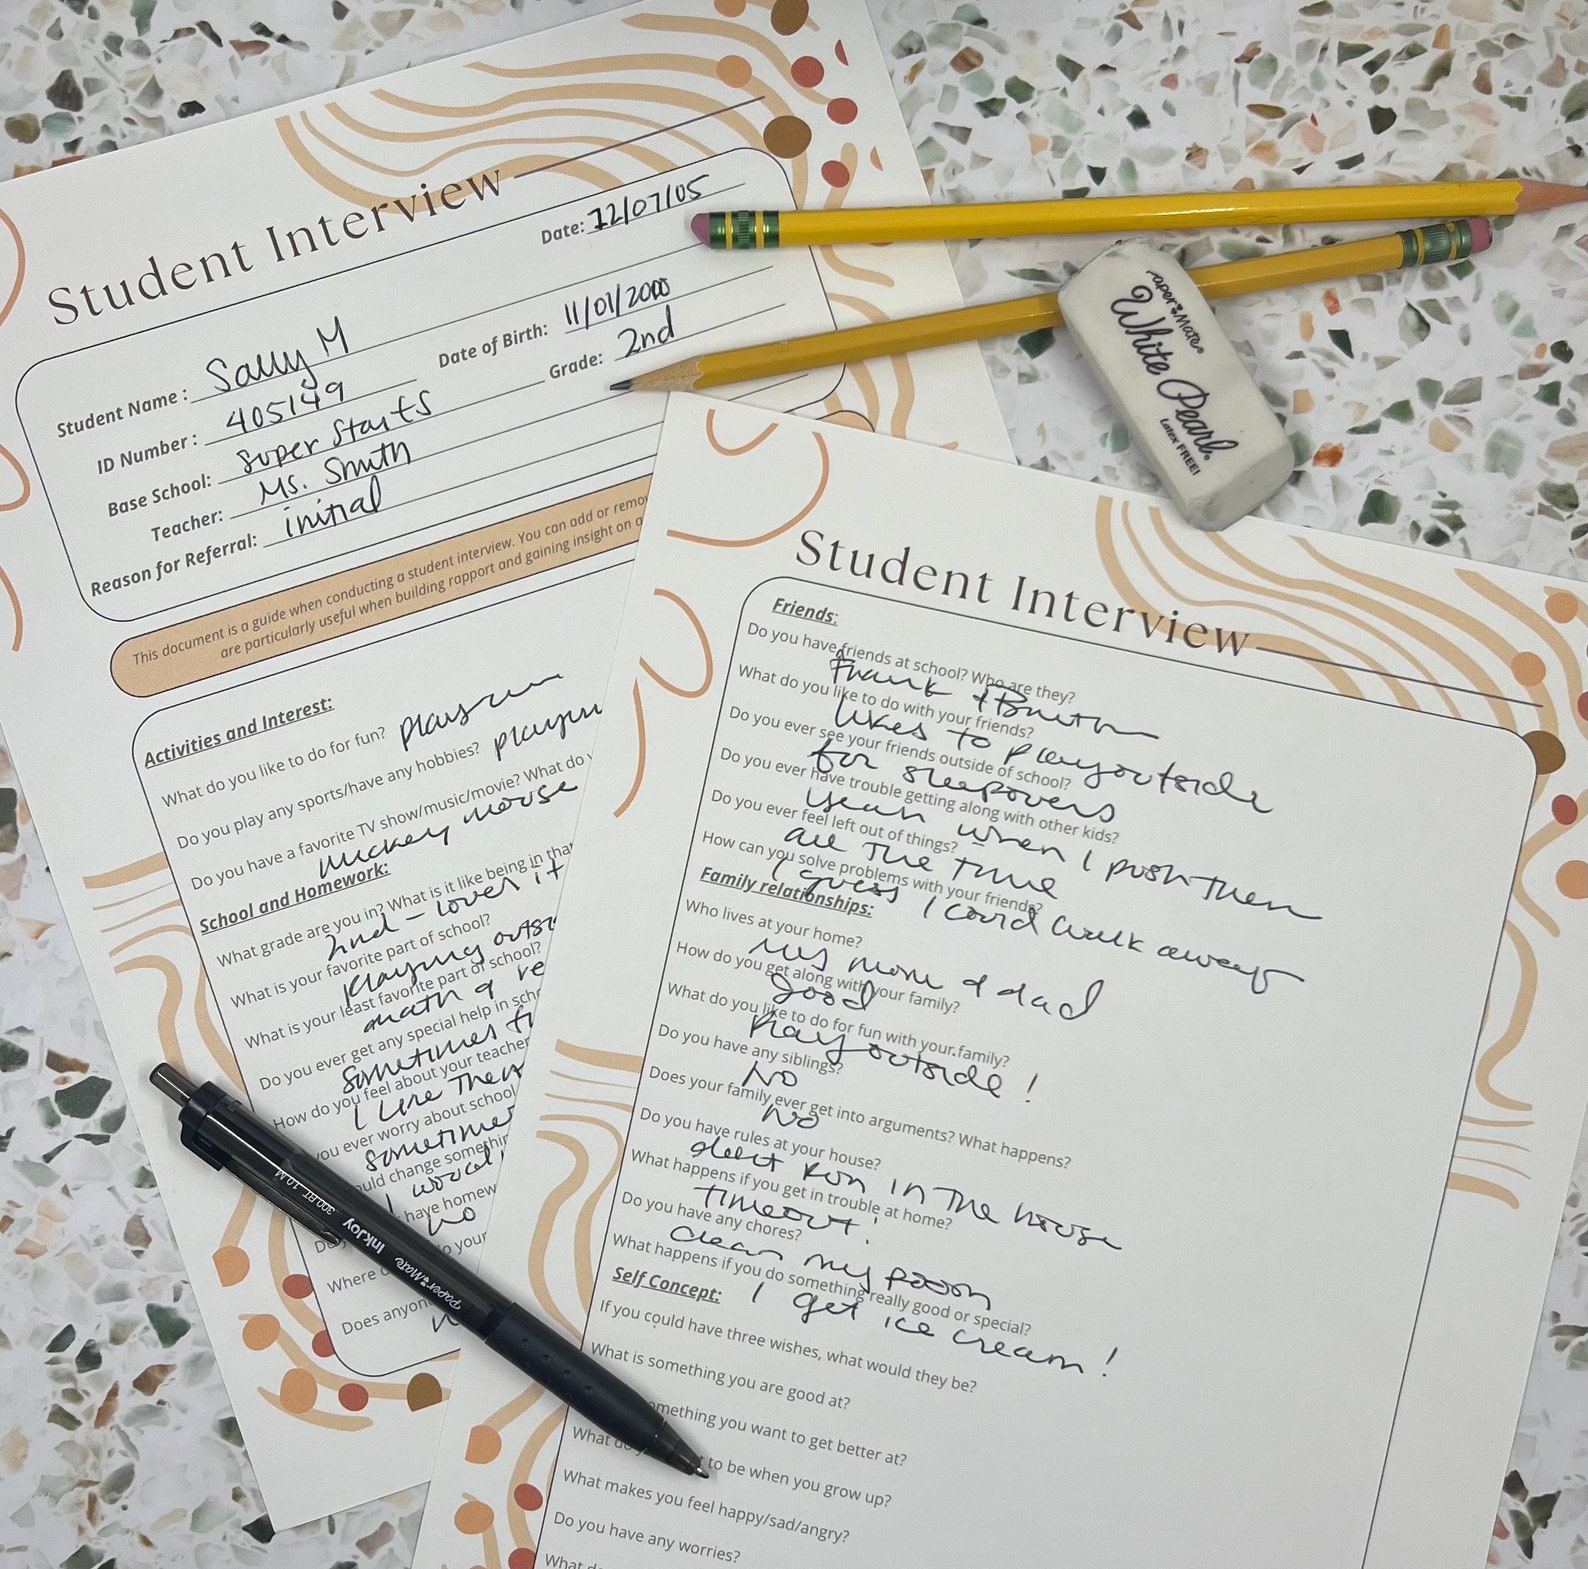 Student Interview
Date: 12/07/05
Student Name: Sally M
Date of Birth: 11/01/2000
ID Number: 405149
Grade: 2nd
Base School: Super Starts
Teacher: Ms. Smith
Reason for Referral: initial
This document is a guide when conducting a student interview. You can add or remo
are particularly useful when building rapport and gaining insight on a
Activities and Interest:
What do you like to do for fun?
Do you play any sports/have any hobbies?
Do you have a favorite TV show/music/movie? What do
Mickey Mouse
School and Homework:
What grade are you in? What is it like being in that
2nd - loves it
What is your favorite part of school?
playing outs
What is your least favorite part of school?
math & re
Do you ever get any special help in scho
sometimes
How do you feel about your teacher
I like them
you ever worry about school
sometimes
ould change somethin
I would
have homew
no
Where
o your
Does anyon
Student Interview
Friends:
Do you have friends at school? Who are they?
Frank &
What do you like to do with your friends?
likes to play outside
Do you ever see your friends outside of school?
for sleepovers
Do you ever have trouble getting along with other kids?
yeah when I push them
Do you ever feel left out of things?
all the time
How can you solve problems with your friends?
I guess I could walk away
Family relationships:
Who lives at your home?
my mom & dad
How do you get along with your family?
good
What do you like to do for fun with your family?
Play outside!
Do you have any siblings?
No
Does your family ever get into arguments? What happens?
No
Do you have rules at your house?
don't run in the house
What happens if you get in trouble at home?
timeout!
Do you have any chores?
clean my room
What happens if you do something really good or special?
I get ice cream!
Self Concept:
If you could have three wishes, what would they be?
What is something you are good at?
omething you want to get better at?
What do
to be when you grow up?
What makes you feel happy/sad/angry?
Do you have any worries?
What d
Paper Mate
White Pearl
Latex FREE!
Paper Mate InkJoy 300RT 1.0M